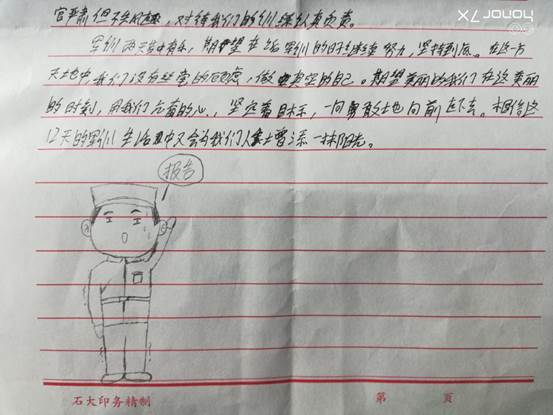 honor 7X
官严肃但不失风趣，对待我们的训练认真负责。
军训两天苦中有乐，期望在后军训的日子继续努力，坚持到底。在这一方
天地中，我们没有经常的顾虑，做回真实的自己。期望美丽的我们在这美丽
的时刻，用我们充着的心，坚定着目标，一向勇敢地向前走下去。相信这
12天的军训生活中又会为我们人生增添一抹阳光。
报告
石大印务精制
第 页